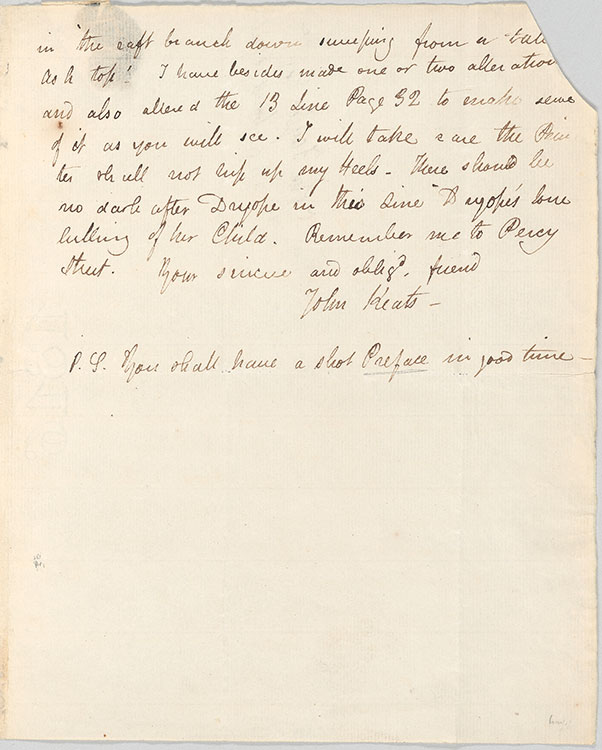 in "the raft branch down sweeping from a tall
Ash top" I have besides made one or two alteration
and also altered the 13 Line Page 32 to make sense
of it as you will see. I will take care the Prin
ters shall not trip up my Heels - There should be
no dash after Dryope in this Line "Dryope's lone
lulling of her Child. Remember me to Percy
Street. Your sincere and oblig^d. friend
John Keats -
P.S. You shall have a shot Preface in good time -